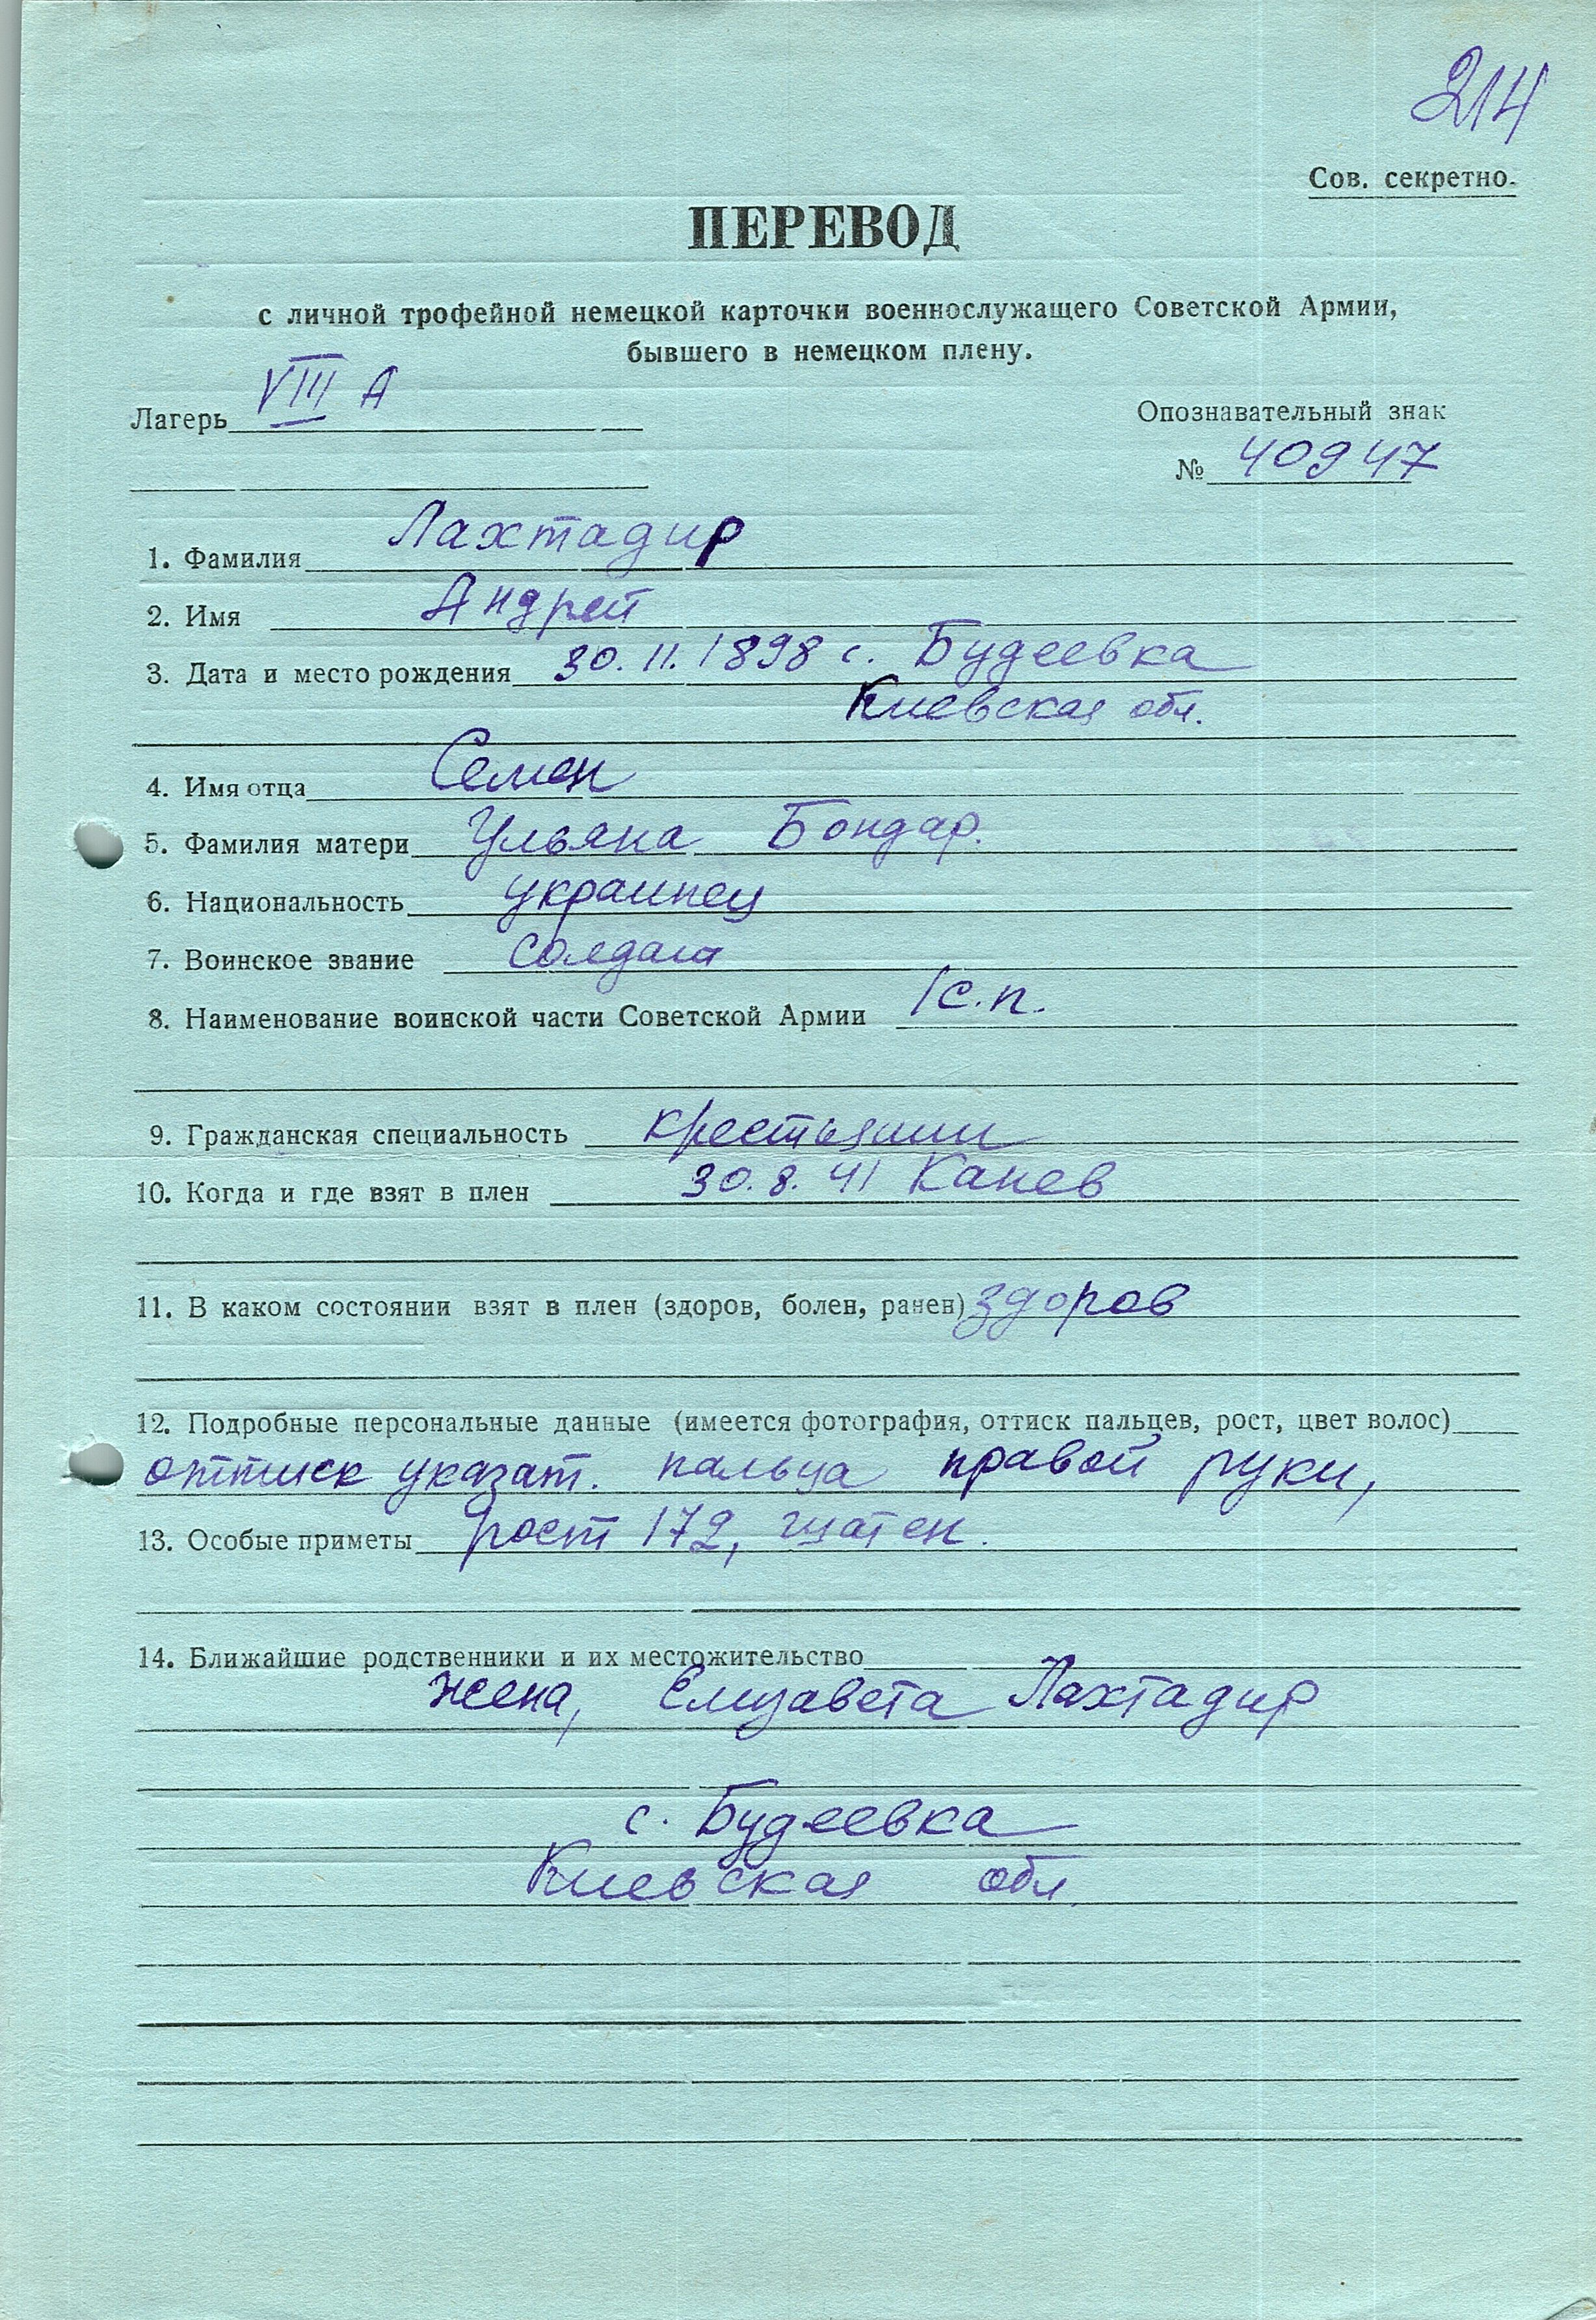 214
Сов. секретно.
ПЕРЕВОД
с личной трофейной немецкой карточки военнослужащего Советской Армии,
бывшего в немецком плену.
Лагерь VIII А
Опознавательный знак
№ 40947
1. Фамилия Лахтадир
2. Имя Андрей
3. Дата и место рождения 30.11.1898 с. Будеевка
Киевская обл.
4. Имя отца Семен
5. Фамилия матери Ульяна Бондар.
6. Национальность украинец
7. Воинское звание солдат
8. Наименование воинской части Советской Армии 1 с.п.
9. Гражданская специальность крестьянин
10. Когда и где взят в плен 30.8.41 Канев
11. В каком состоянии взят в плен (здоров, болен, ранен) здоров
12. Подробные персональные данные (имеется фотография, оттиск пальцев, рост, цвет волос)
оттиск указат. пальца правой руки,
13. Особые приметы рост 172, шатен.
14. Ближайшие родственники и их местожительство
жена, Елизавета Лахтадир
с. Будеевка
Киевская обл.